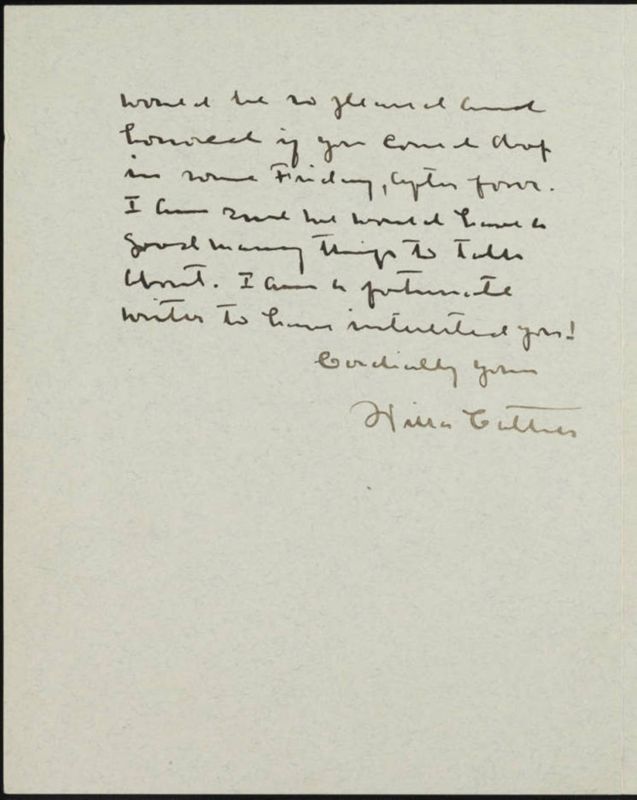 would be so pleased and
honored if you could drop
in some Friday, after four.
I am sure we would have a
good many things to talk
about. I am a fortunate
writer to have interested you!
Cordially yours
Willa Cather